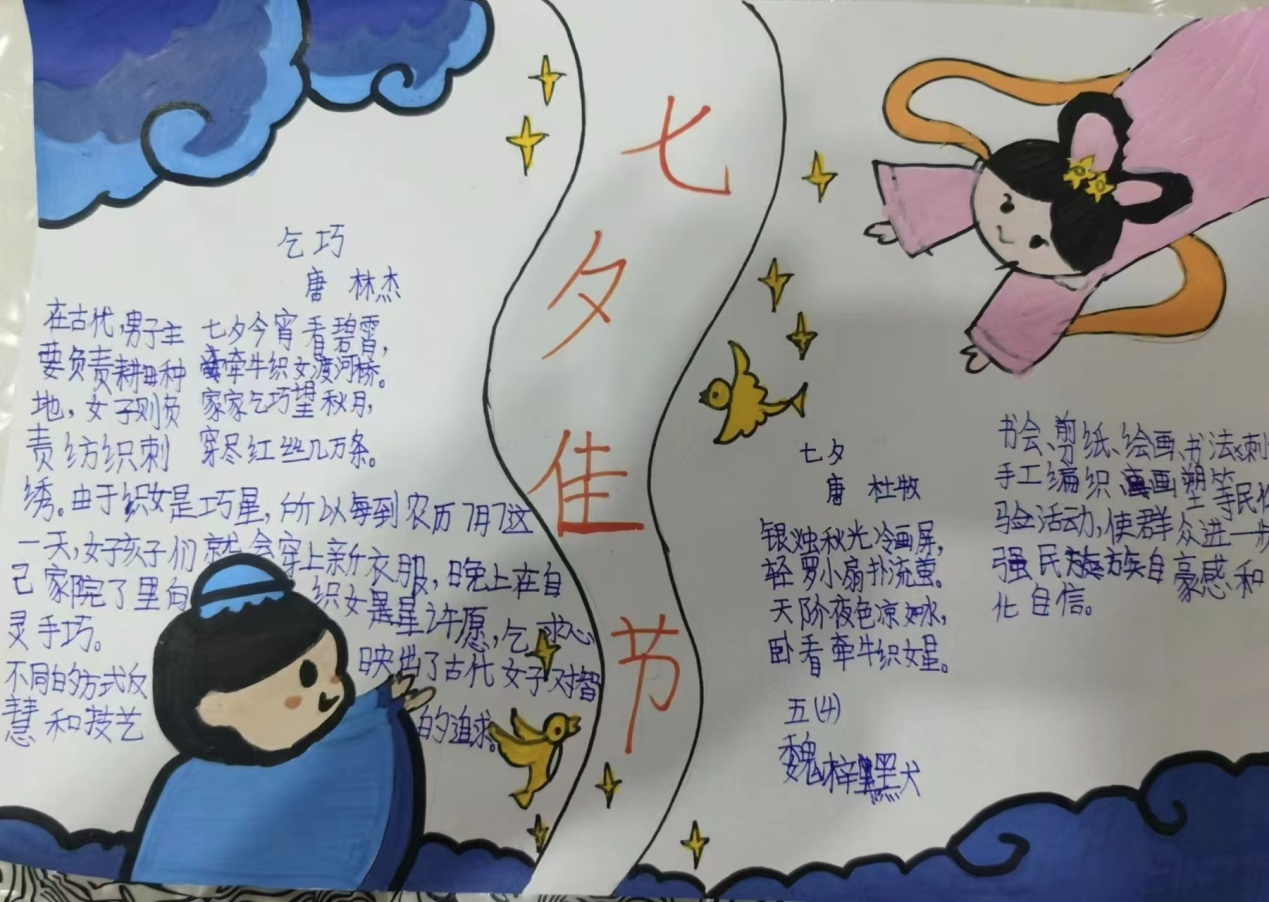 七夕佳节
乞巧
唐 林杰
七夕今宵看碧霄,
牵牛织女渡河桥。
家家乞巧望秋月,
穿尽红丝几万条。
在古代,男子主
要负责耕种
地,女子则负
责纺织刺
绣。由于织女是巧星,所以每到农历7月7这
一天,女子孩子们就会穿上新衣服,晚上在自
己家院了里向 织女星许愿,乞求心
灵手巧。
不同的方式反 映出了古代女子对智
慧和技艺 的追求。
七夕
唐 杜牧
银烛秋光冷画屏,
轻罗小扇扑流萤。
天阶夜色凉如水,
卧看牵牛织女星。
五(4)
魏梓
书会、剪纸、绘画、书法、刺
手工编织、画塑等民
验活动,使群众进一步
强民族自豪感和
化自信。